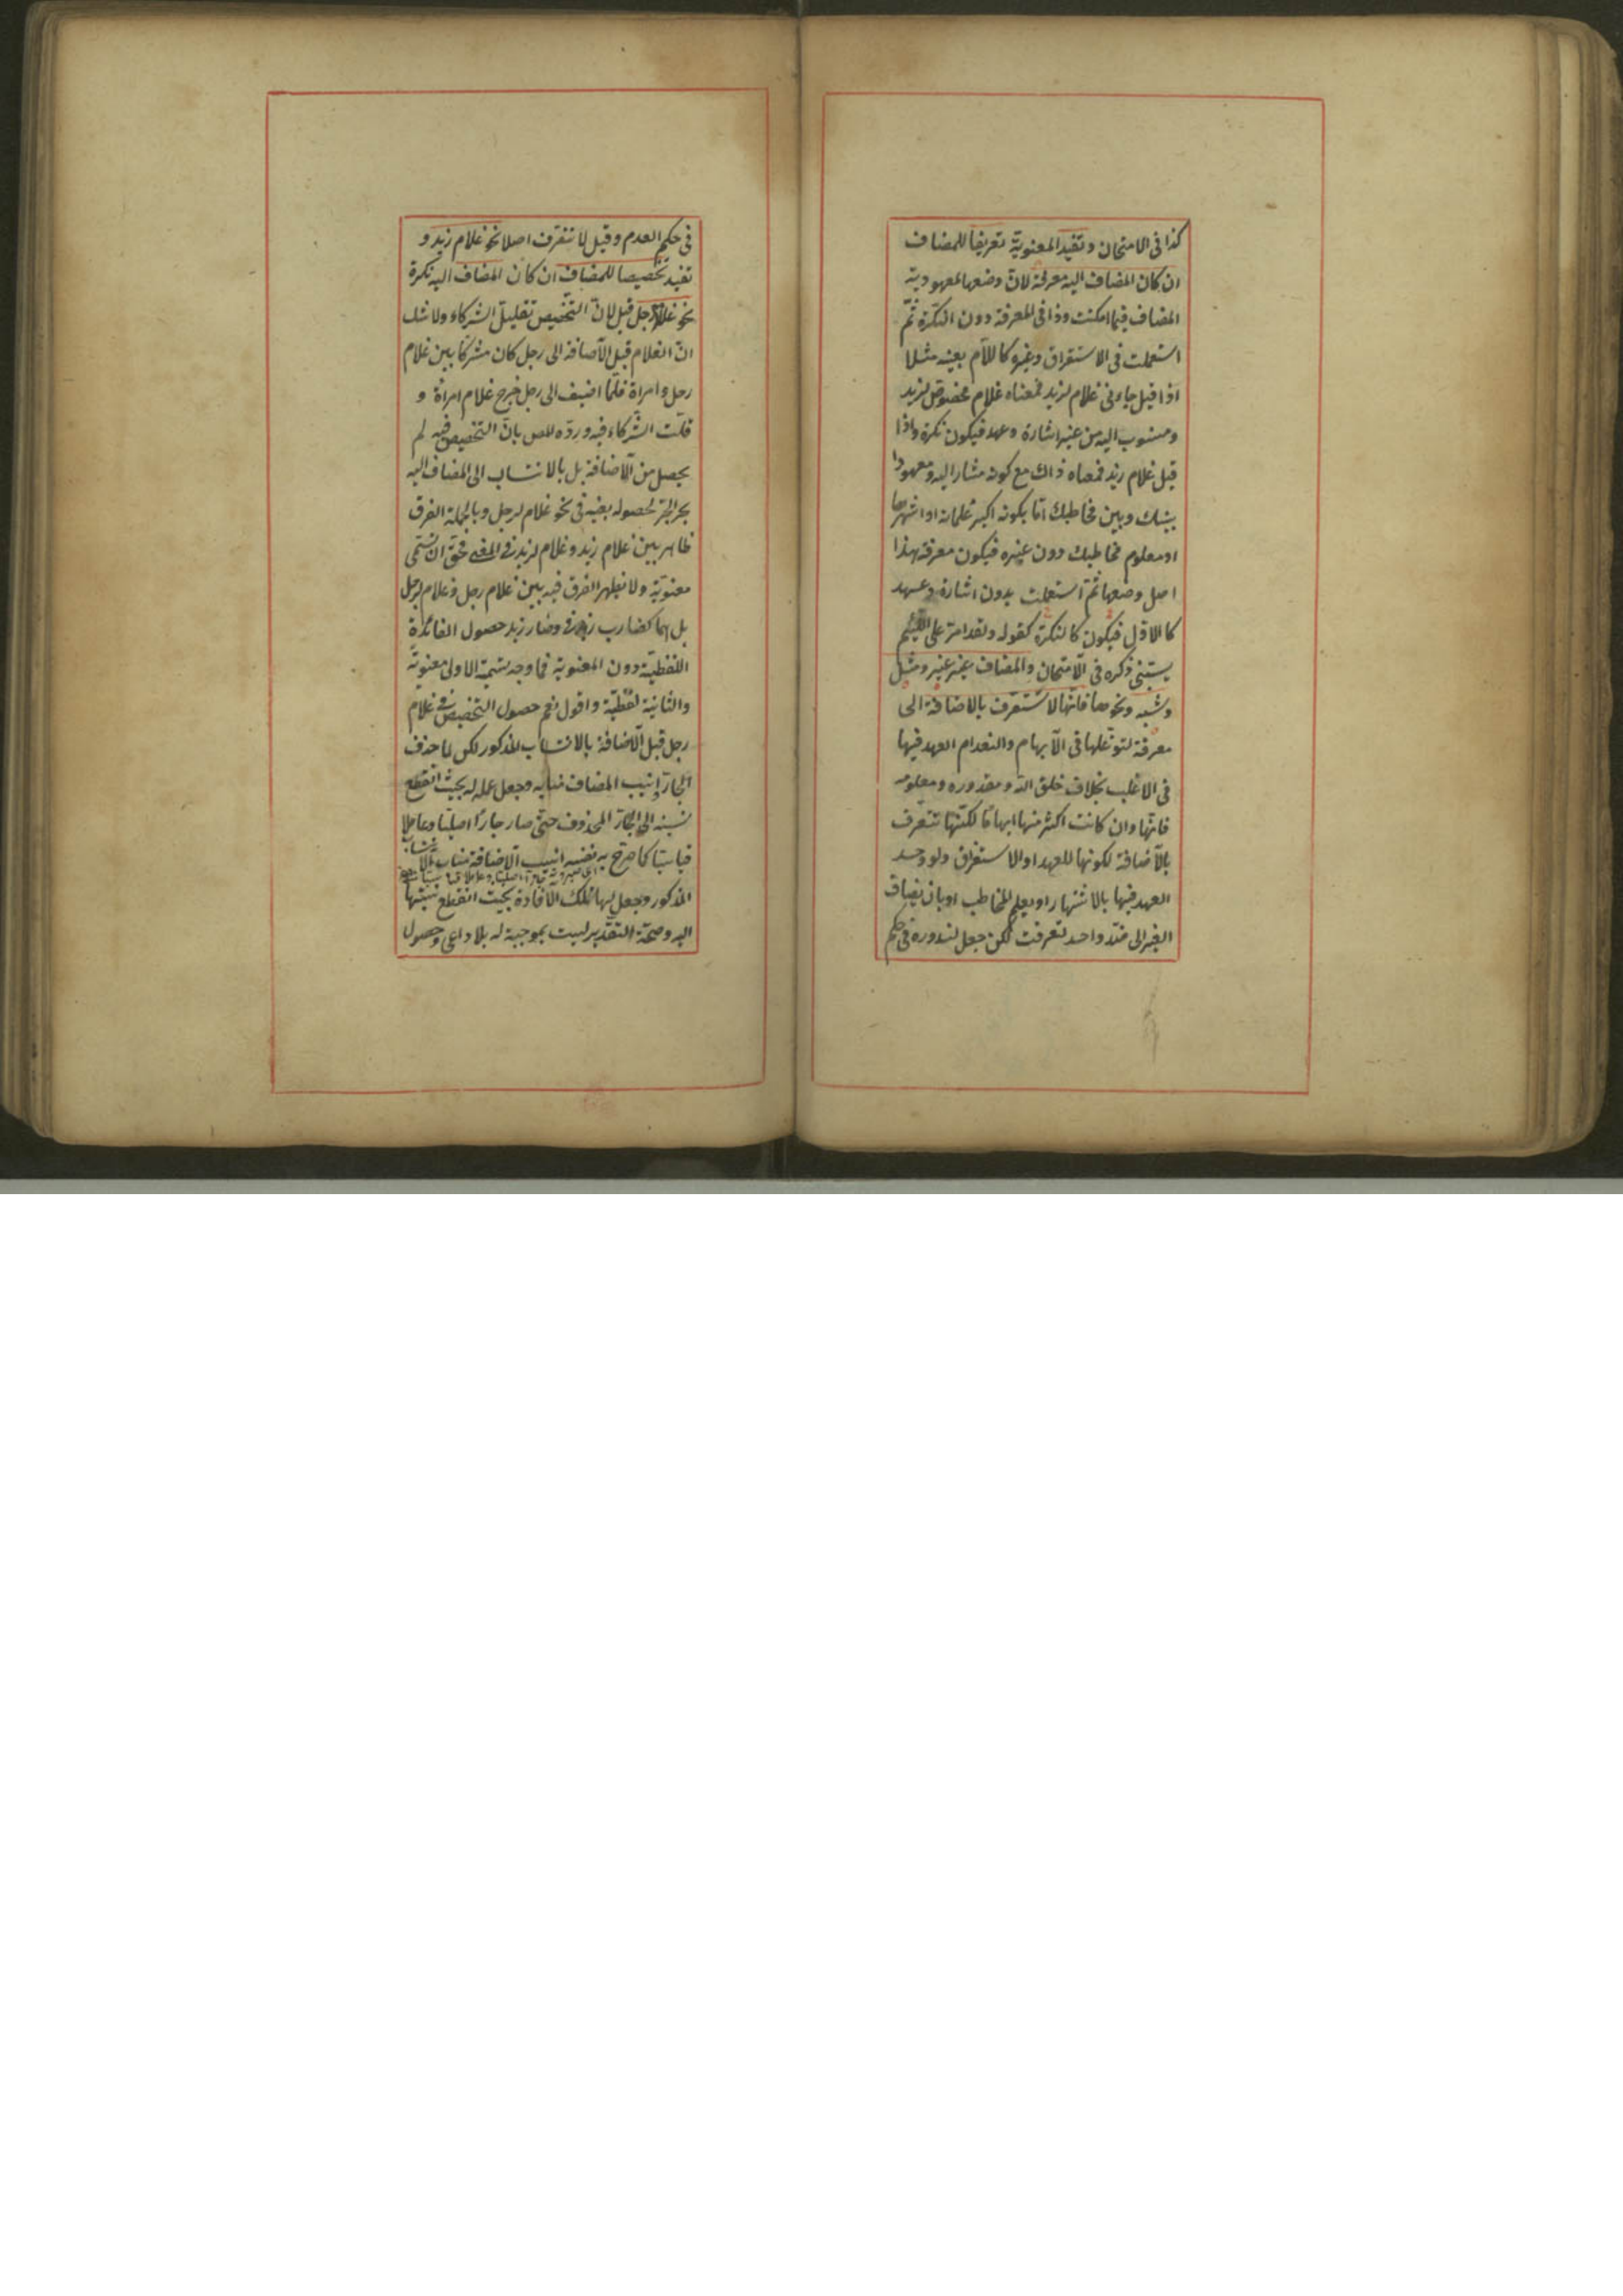 كذا فى الامتحان وتفيد المعنوية تعريفا للمضاف
ان كان المضاف اليه معرفة لان وضعها لمعهودية
المضاف فيما امكنت وذا فى المعرفة دون النكرة ثم
استعملت فى الاستغراق وغيره كاللام بعينه مثلا
اذا قيل جاءنى غلام لزيد فمعناه غلام مخصوص لزيد
ومنسوب اليه من غير اشارة وعهد فيكون نكرة واذا
قيل غلام زيد فمعناه ذاك مع كونه مشارا اليه ومعهودا
بينك وبين مخاطبك اما بكونه اكبر غلمانه او اشهرها
او معلوم مخاطبك دون غيره فيكون معرفة هذا
اصل وضعها ثم استعملت بدون اشارة وعهد
كالاول فيكون كالنكرة كقوله ولقد امر على اللئيم
يسبنى ذكره فى الامتحان والمضاف غير غير ومثل
وشبه ونحوها فانها لا تتعرف بالاضافة الى
معرفة لتوغلها فى الابهام والنعدام العهد فيها
فى الاغلب بخلاف خلق الله ومقدوره ومعلومه
فانها وان كانت اكثر منها ابهاما لكنها تتعرف
بالاضافة لكونها للعهد او الاستغراق ولو وجد
العهد فيها بالاشتهار او بعلم المخاطب او بان يضاف
الغير الى ضد واحد تعرفت لكن جعل لندوره فى حكم
فى حكم العدم وقيل لا تتعرف اصلا نحو غلام زيد و
تفيد تخصيصا للمضاف ان كان المضاف اليه نكرة
نحو غلام رجل قيل لان التخصيص تقليل الشركاء ولا شك
ان الغلام قبل الاضافة الى رجل كان مشتركا بين غلام
رجل وامراة فلما اضيف الى رجل خرج غلام امراة و
قلت الشركاء فيه ورده المص بان التخصيص فيه لم
يحصل من الاضافة بل بالانتساب الى المضاف اليه
بحر الجر لحصوله بعينه فى نحو غلام لرجل وبالجملة الفرق
ظاهر بين غلام زيد وغلام لزيد فى المعنى فحق ان تسمى
معنوية ولا يظهر الفرق فيه بين غلام رجل وغلام لرجل
بل هما كضارب زيد وضارب زيد حصول الفائدة
اللفظية دون المعنوية فما وجه تسمية الاولى معنوية
والثانية لفظية واقول نعم حصول التخصيص فى غلام
رجل قبل الاضافة بالانتساب المذكور لكن لما حذف
الجار انيب المضاف منابه وجعل عمله له بحيث انقطع
نسبته الى الجار المحذوف حتى صار جارا اصليا وعاملا
قياسيا كما صرح به نفسه انيب الاضافة مناب الانتساب
المذكور وجعل لها تلك الافادة بحيث انقطع نسبتها
اليه وصحة التقدير ليست بموجبة له بلا داعى وحصول